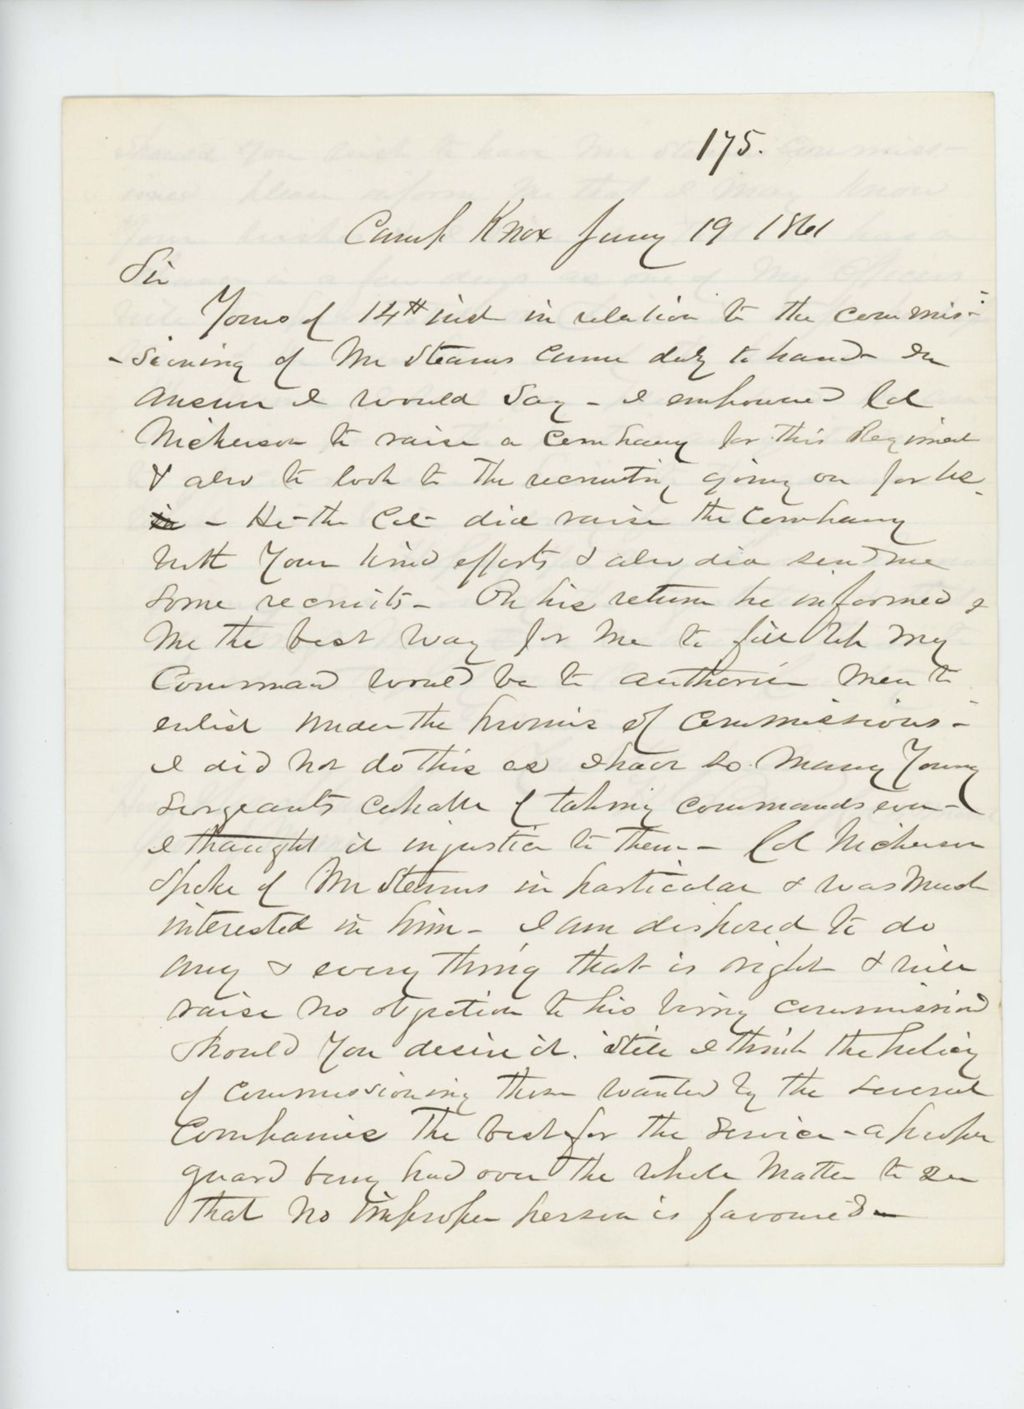 175.
Camp Knox Jany 19 1861
Sir
Yours of 14th inst in relation to the commis-
-sioning of Mr Stearns came duly to hand - In
answer I would say - I empowered Col
Nickerson to raise a company for this Regiment
& also to look to the recruiting going on for us
- He - the Col - did raise the company
with your kind efforts & also did send me
some recruits - On his return he informed
me the best way for me to fill up my
Command would be to authorise men to
enlist under the promise of commissions -
I did not do this as I have so many young
Sergeants capable of taking commands even -
I thought it injustice to them - Col Nickerson
spoke of Mr Stearns in particular & was much
interested in him - I am disposed to do
any & every thing that is right & will
raise no objection to his being commissioned
should you desire it. Still I think the policy
of commissioning those wanted by the several
Companies the best for the service - a proper
guard being had over the whole matter to see
that no improper person is favoured -